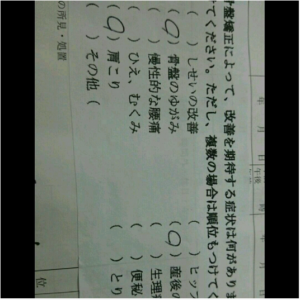 年 月 日 時 年 月 日
午後
骨盤矯正によって、改善を期待する症状は何があり
てください。ただし、複数の場合は順位もつけてく
( ) しせいの改善 ( ) ヒップ
(○) 骨盤のゆがみ (○) 産後の
( ) 慢性的な腰痛 ( ) 生理
( ) ひえ、むくみ ( ) 便秘
(○) 肩こり ( ) とり
( ) その他 (
の所見・処置
位